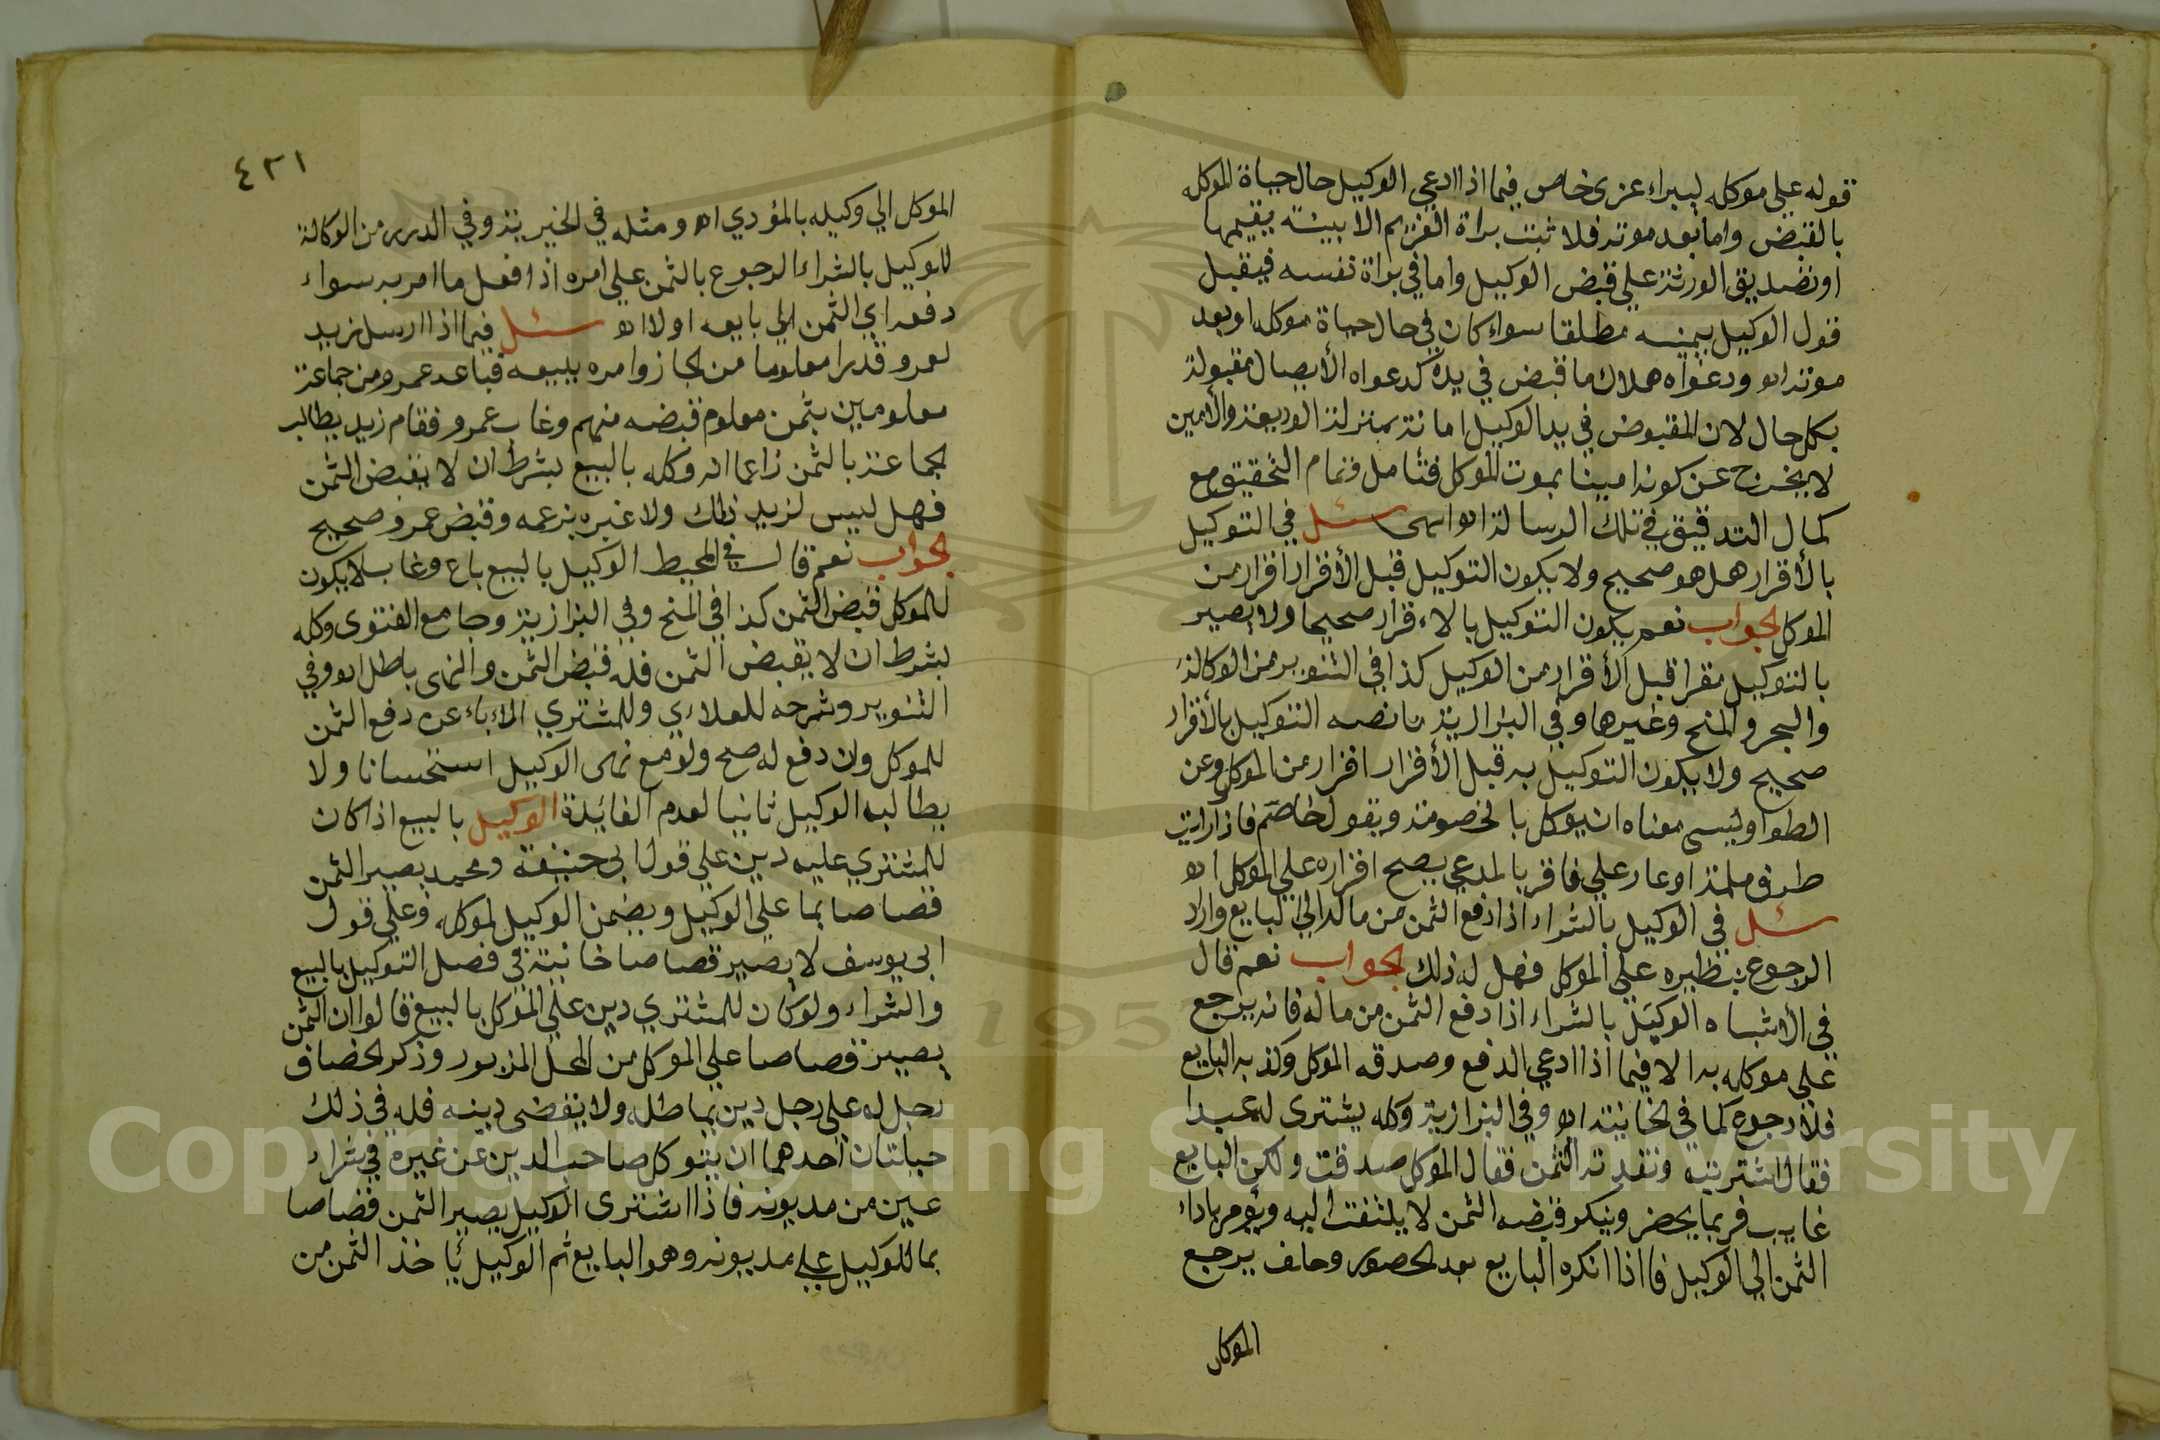 قوله على موكله ليبراء غريمه خاص فيما اذا ادعي الوكيل حال حياة الموكل
بالقبض واما بعد موته فلا ثبتت براة الغريم الا ببينة يقيمها
او تصديق الورثة علي قبض الوكيل واما في براة نفسه فيقبل
قول الوكيل بيمينه مطلقا سواء كان في حال حياة موكله او بعد
موته اه ودعواه هلاك ما قبض في يده كدعواه الأيصال مقبولة
بكل حال لان المقبوض في يد الوكيل امانة بمنزلة الوديعة والأمين
لا يخرج عن كونه امينا بموت الموكل فتامل وتمام التحقيق مع
كمال التدقيق في تلك الرسالة اه سئل في التوكيل
بالأقرار هل هو صحيح ولا يكون التوكيل قبل الأقرار اقرار من
الموكل لجواب نعم يكون التوكيل بالاءقرار صحيحا ولا يصير
بالتوكيل مقرا قبل الأقرار من الوكيل كذا في التنوير من الوكالة
والبحر والمنح وغيرها وفي البزازية ما نصه التوكيل بالأقرار
صحيح ولا يكون التوكيل به قبل الأقرار اقرار من الموكل وعن
الطواويسي معناه ان يوكل بالخصومة ويقول خاصم فاذا رايت
طرف ملمة او عار علي فاقر بالمدعي يصح اقراره علي الموكل اه
سئل في الوكيل بالشراء اذا دفع الثمن من ماله الي البايع واراد
الرجوع بنظيره علي الموكل فهل له ذلك لجواب نعم قال
في الأشباه الوكيل بالشراء اذا دفع الثمن من ماله فانه يرجع
علي موكله به الا فيما اذا ادعي الدفع وصدقه الموكل وكذبه البايع
فلا رجوع كما في لخانية اه وفي البزازية وكله يشترى له عبدا
فقال اشتريته ونقدته الثمن فقال الموكل صدقت ولكن البايع
غايب فربما يحضر وينكر قبضه الثمن لا يلتفت اليه ويؤمر باداء
الثمن الي الوكيل فااذا انكره البايع بعد لحضور وحلف يرجع
الموكل
٤٣١
الموكل الي وكيله بالمؤدي اه ومثله في الخيرية وفي الدرر من الوكالة
للوكيل بالشراء الرجوع بالثمن علي امره اذا فعل ما امر به سواء
دفعه اي الثمن الي بايعه اولا اه سئل فيما اذا ارسل زيد
لعمرو قدرا معلوما من لجاز وامره ببيعه فباعه عمرو من جماعة
معلومين بثمن معلوم قبضه منهم وغاب عمرو فقام زيد يطالب
لجماعة بالثمن زاعما انه وكله بالبيع بشرط ان لا يقبض الثمن
فهل ليس لزيد ذلك ولا عبره بزعمه وقبض عمرو صحيح
لجواب نعم قال في المحيط الوكيل بالبيع باع وغاب لا يكون
للموكل قبض الثمن كذا في المنح وفي البزازية وجامع الفتوى وكله
بشرط ان لا يقبض الثمن فله قبض الثمن والنهى باطل اه وفي
التنوير وشرحه للعلاءي وللمشتري الاباء عن دفع الثمن
للموكل وان دفع له صح ولو مع نهى الوكيل استحسانا ولا
يطالبه الوكيل ثانيا لعدم الفائدة الوكيل بالبيع اذا كان
للمشتري عليه دين علي قول ابى حنيفة ومحمد يصير الثمن
قصاصا بما علي الوكيل ويضمن الوكيل لموكله وعلي قول
ابى يوسف لا يصير قصاصا خانية في فصل التوكيل بالبيع
والشراء ولو كان للمشتري دين علي الموكل بالبيع قالوا ان الثمن
يصير قصاصا علي الموكل من المحل المزبور وذكر لخصاف
رجل له علي رجل دين يماطله ولا يقضى دينه فله في ذلك
حيلتان احدهما ان يتوكل صاحب الدين عن غيره في شراء
عين من مديونه فاذا اشترى الوكيل يصير الثمن قصاصا
بما للوكيل علي مديونه وهو البايع ثم الوكيل يأخذ الثمن من
Copyright © King Saud University
195